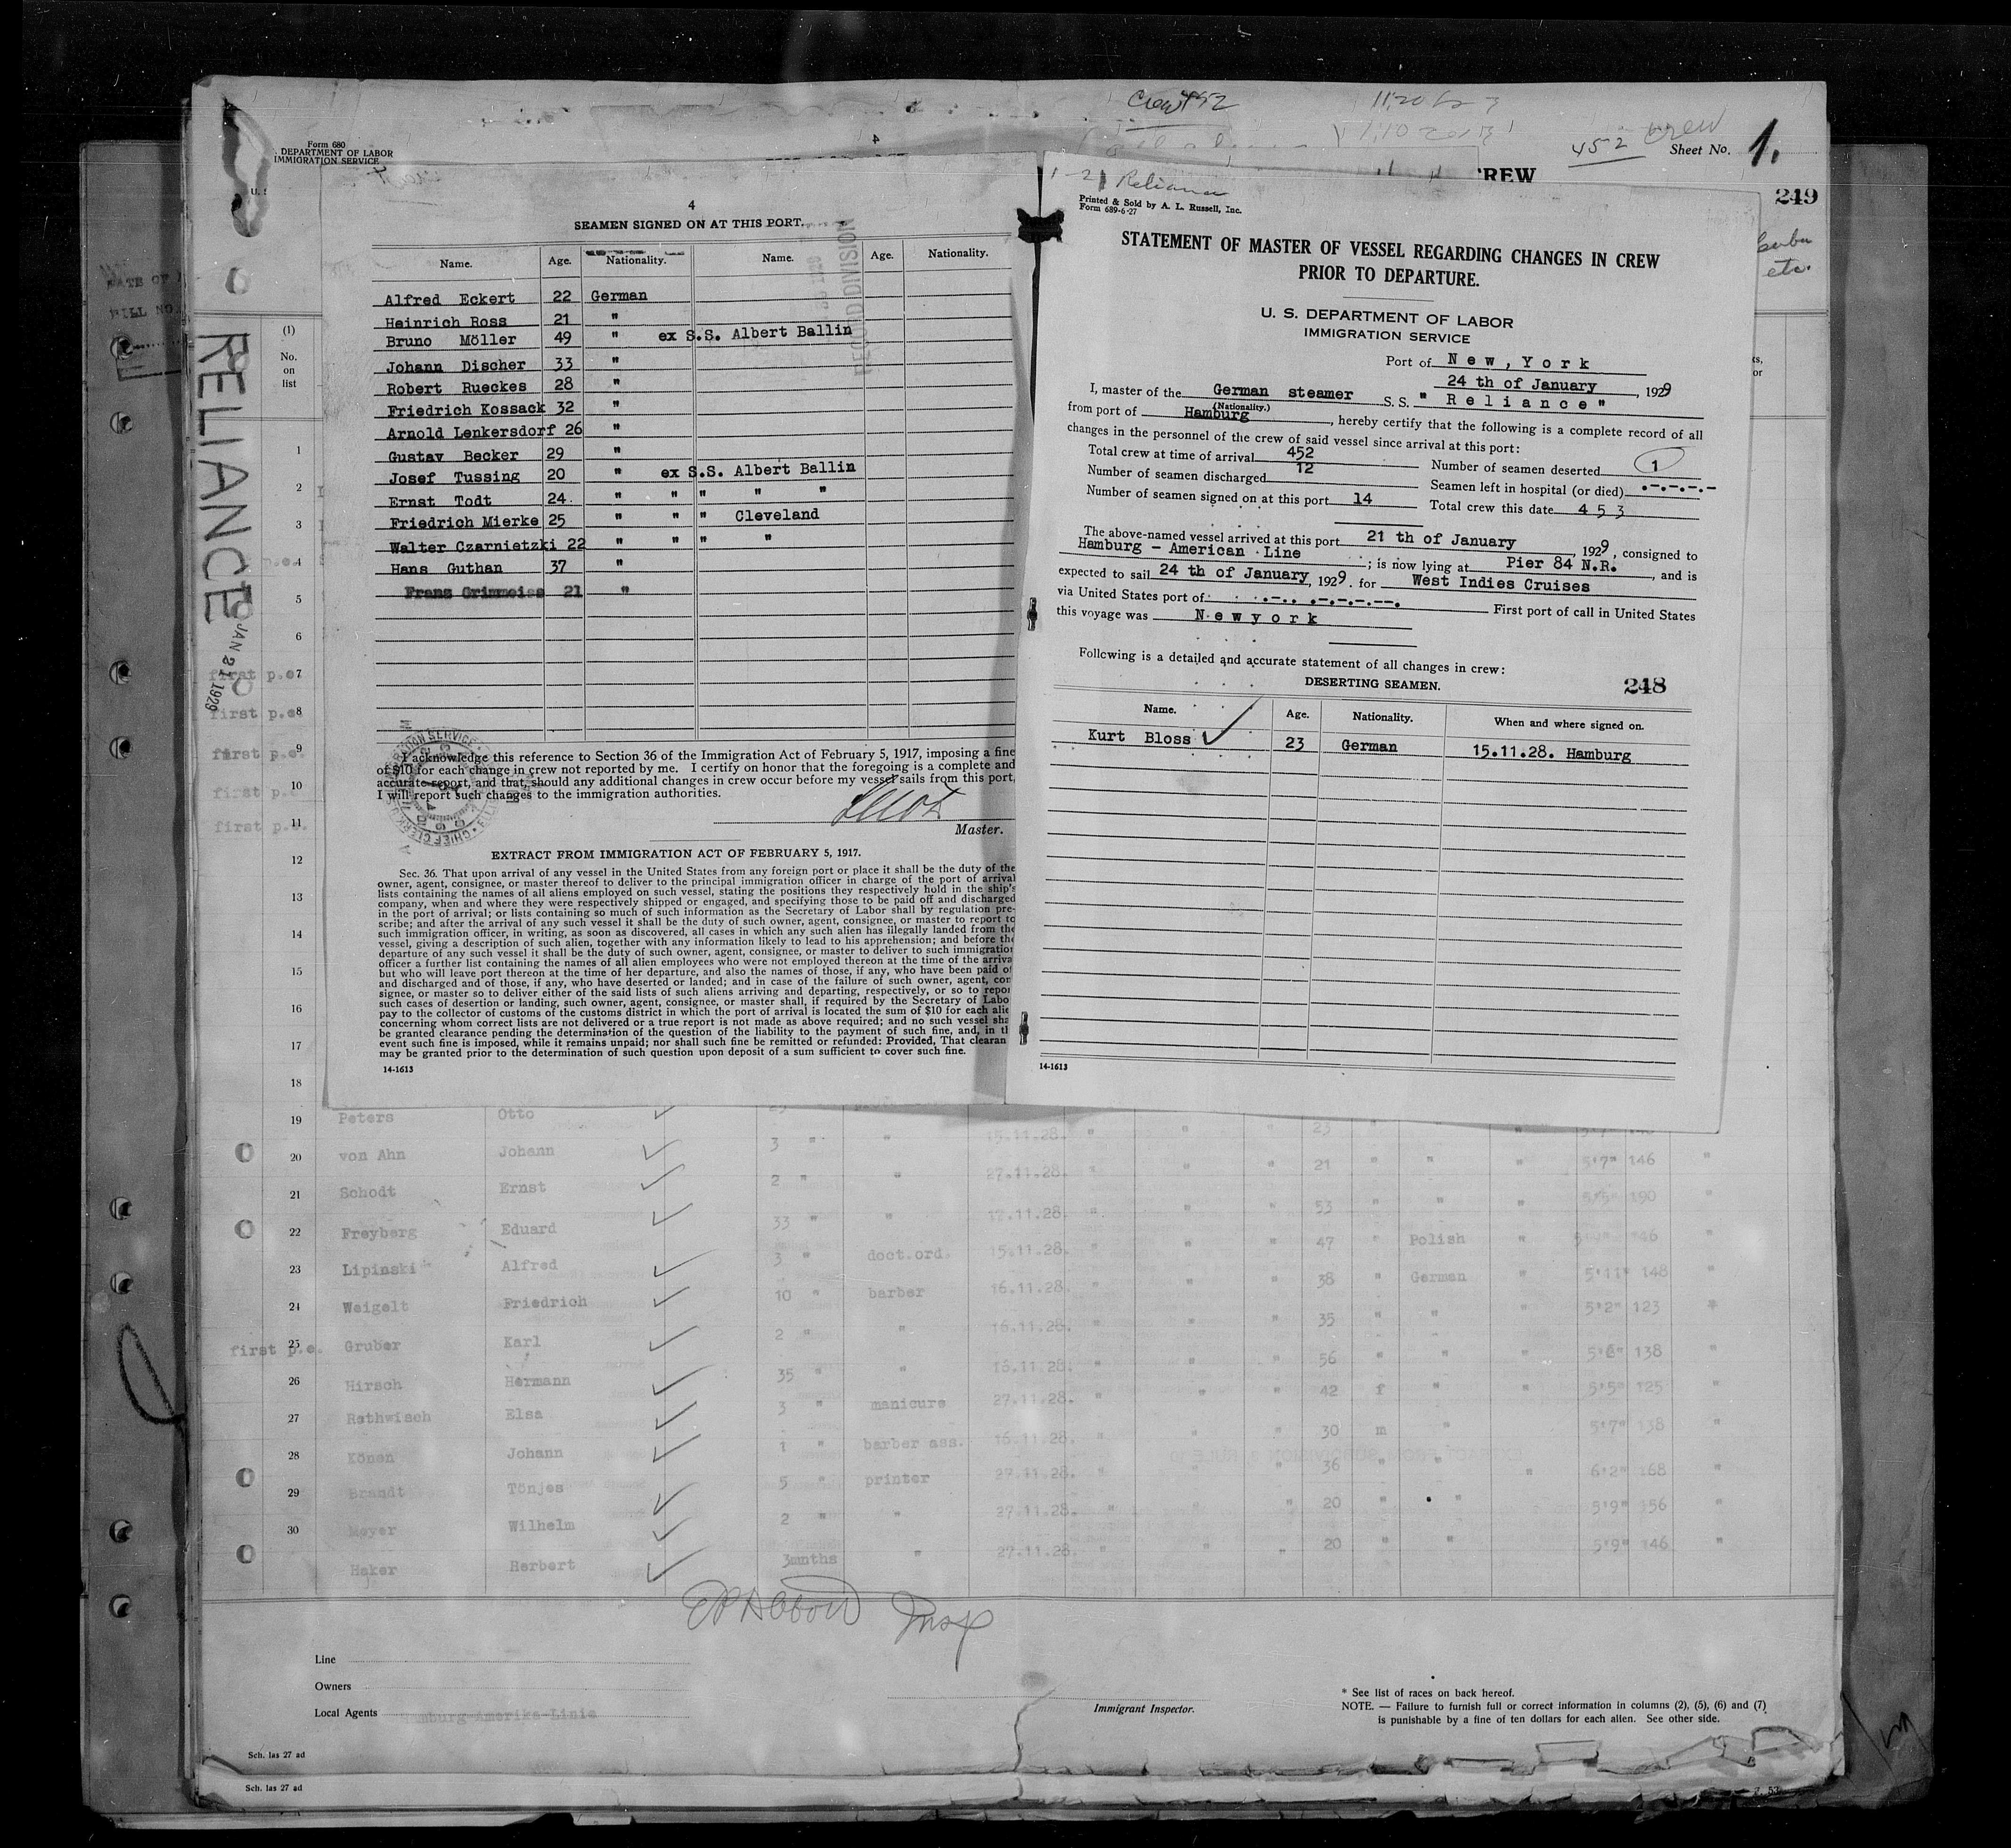 Crew 452
452 crew
Form 680
U. S. DEPARTMENT OF LABOR
IMMIGRATION SERVICE
Sheet No. 1.
CREW
249
Cuba
etc.
RELIANCE
JAN 21 1929
(1)
No.
on
list
4
SEAMEN SIGNED ON AT THIS PORT.
Name. Age. Nationality. Name. Age. Nationality.
Alfred Eckert 22 German
Heinrich Ross 21 "
Bruno Möller 49 " ex S.S. Albert Ballin
Johann Discher 33 "
Robert Rueckes 28 "
Friedrich Kossack 32 "
Arnold Lenkersdorf 26 "
Gustav Becker 29 "
Josef Tussing 20 " ex S.S. Albert Ballin
Ernst Todt 24. " " " " "
Friedrich Mierke 25 " " " Cleveland
Walter Czarnietzki 22 " " " "
Hans Guthan 37 "
Franz Grimmeiss 21 "
RECORD DIVISION
I acknowledge this reference to Section 36 of the Immigration Act of February 5, 1917, imposing a fine
of $10 for each change in crew not reported by me. I certify on honor that the foregoing is a complete and
accurate report, and that, should any additional changes in crew occur before my vessel sails from this port,
I will report such changes to the immigration authorities.
Master.
EXTRACT FROM IMMIGRATION ACT OF FEBRUARY 5, 1917.
Sec. 36. That upon arrival of any vessel in the United States from any foreign port or place it shall be the duty of the
owner, agent, consignee, or master thereof to deliver to the principal immigration officer in charge of the port of arrival
lists containing the names of all aliens employed on such vessel, stating the positions they respectively hold in the ship's
company, when and where they were respectively shipped or engaged, and specifying those to be paid off and discharged
in the port of arrival; or lists containing so much of such information as the Secretary of Labor shall by regulation pre-
scribe; and after the arrival of any such vessel it shall be the duty of such owner, agent, consignee, or master to report to
such immigration officer, in writing, as soon as discovered, all cases in which any such alien has illegally landed from the
vessel, giving a description of such alien, together with any information likely to lead to his apprehension; and before the
departure of any such vessel it shall be the duty of such owner, agent, consignee, or master to deliver to such immigration
officer a further list containing the names of all alien employees who were not employed thereon at the time of the arrival
but who will leave port thereon at the time of her departure, and also the names of those, if any, who have been paid of
and discharged and of those, if any, who have deserted or landed; and in case of the failure of such owner, agent, con
signee, or master so to deliver either of the said lists of such aliens arriving and departing, respectively, or so to repor
such cases of desertion or landing, such owner, agent, consignee, or master shall, if required by the Secretary of Labo
pay to the collector of customs of the customs district in which the port of arrival is located the sum of $10 for each alie
concerning whom correct lists are not delivered or a true report is not made as above required; and no such vessel sha
be granted clearance pending the determination of the question of the liability to the payment of such fine, and, in th
event such fine is imposed, while it remains unpaid; nor shall such fine be remitted or refunded: Provided, That clearan
may be granted prior to the determination of such question upon deposit of a sum sufficient to cover such fine.
14-1613
1-21 Reliance
Printed & Sold by A. L. Russell, Inc.
Form 689-6-27
STATEMENT OF MASTER OF VESSEL REGARDING CHANGES IN CREW
PRIOR TO DEPARTURE.
U. S. DEPARTMENT OF LABOR
IMMIGRATION SERVICE
Port of New, York
24 th of January, 1929
I, master of the German steamer S.S. " Reliance "
(Nationality.)
from port of Hamburg, hereby certify that the following is a complete record of all
changes in the personnel of the crew of said vessel since arrival at this port:
Total crew at time of arrival 452 Number of seamen deserted 1
Number of seamen discharged 12 Seamen left in hospital (or died) .-.-.-.-
Number of seamen signed on at this port 14 Total crew this date 453
The above-named vessel arrived at this port 21 th of January, 1929, consigned to
Hamburg - American Line; is now lying at Pier 84 N.R., and is
expected to sail 24 th of January, 1929. for West Indies Cruises
via United States port of .-.. .-.-.-.--. First port of call in United States
this voyage was Newyork
Following is a detailed and accurate statement of all changes in crew:
DESERTING SEAMEN. 248
Name. Age. Nationality. When and where signed on.
Kurt Bloss 23 German 15.11.28. Hamburg
14-1613
1
2
3
4
5
6
first p.e. 7
first p.e. 8
first p.e. 9
first p.e. 10
first p.e. 11
12
13
14
15
16
17
18
19 Peters Otto
20 von Ahn Johann 3 " " 15.11.28. " " " 23 " " "
21 Schodt Ernst 2 " " 27.11.28. " " " 21 " " " 5'7" 146 "
22 Freyberg Eduard 33 " " 17.11.28. " " " 53 " " " 5'5" 190 "
23 Lipinski Alfred 3 " doct.ord. 15.11.28. " " " 47 " Polish " 146 "
24 Weigelt Friedrich 10 " barber 16.11.28. " " " 38 " German " 5'11" 148 "
first p.e. 25 Gruber Karl 2 " " 16.11.28. " " " 35 " " " 5'2" 123 "
26 Hirsch Hermann 35 " " 16.11.28. " " " 56 " " " 5'6" 138 "
27 Rethwisch Elsa 3 " manicure 27.11.28. " " " 42 f " " 5'5" 125 "
28 Könen Johann 1 " barber ass. 16.11.28. " " " 30 m " 5'7" 138 "
29 Brandt Tönjes 5 " printer 27.11.28. " " " 36 " " " 6'2" 168 "
30 Meyer Wilhelm 2 " " 27.11.28. " " " 20 " " 5'9" 156 "
Haker Herbert 3mnths " 27.11.28. " " " 20 " " " 5'9" 146 "
EP Abbott Insp
Line
Owners
Local Agents Hamburg-Amerika-Linie
Immigrant Inspector.
* See list of races on back hereof.
NOTE. — Failure to furnish full or correct information in columns (2), (5), (6) and (7)
is punishable by a fine of ten dollars for each alien. See other side.
Sch. las 27 ad
Sch. las 27 ad